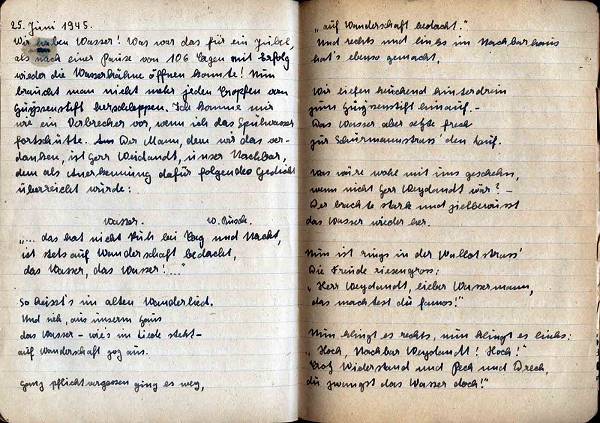 25. Juni 1945.
Wir haben Wasser! Was war das für ein Jubel,
als nach einer Pause von 106 Tagen mit Erfolg
wieder die Wasserhähne öffnen konnte! Nun
braucht man nicht mehr jeden Tropfen vom
Huyssenstift herschleppen. Ich komme mir
wie ein Verbrecher vor, wenn ich das Spülwasser
fortschütte. Der Mann, dem wir das ver-
danken, ist Herr Weidandt, unser Nachbar,
dem als Anerkennung dafür folgendes Gedicht
überreicht wurde:
Wasser. W. Busch.
"... das hat nicht Ruh bei Tag und Nacht,
ist stets auf Wanderschaft bedacht,
das Wasser, das Wasser!...."
So heisst's im alten Wanderlied.
Und sieh, aus unserm Haus
das Wasser - wie's im Liede steht -
auf Wanderschaft zog aus.
Ganz pflichtvergessen ging es weg,
"auf Wanderschaft bedacht."
Und rechts und links im Nachbarhaus
hat's ebenso gemacht,
Wir liefen keuchend hinterdrein
zum Huyssenstift hinauf. -
Das Wasser aber setzte frech
zur Schürmannstrass' den Lauf.
Was wäre wohl mit uns geschehn,
wenn nicht Herr Weydandt wär'? -
Der brachte stark und zielbewusst
das Wasser wieder her.
Nun ist rings in der Wallotstrass'
Die Freude riesengross:
"Herr Weydandt, lieber Wassermann,
das machtest du famos!"
Nun klingt es rechts, nun klingt es links:
"Hoch, Nachbar Weydandt! Hoch!
Trotz Widerstand und Pech und Dreck,
du zwangst das Wasser doch!"